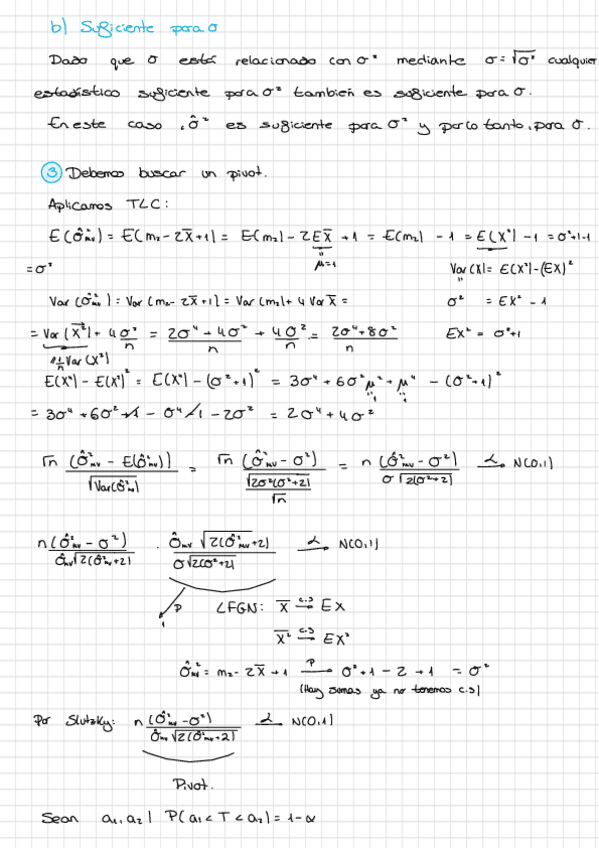 b) Suficiente para σ
Dado que σ está relacionado con σ² mediante σ=√σ² cualquier
estadístico suficiente para σ² también es suficiente para σ.
En este caso, σ̂² es suficiente para σ² y por lo tanto, para σ.
③ Debemos buscar un pivot.
Aplicamos TLC:
E(σ̂²mv) = E(m₂ - 2X̄ + 1) = E(m₂) - 2EX̄ + 1 = E(m₂) - 1 = E(X²) - 1 = σ²+1-1
μ=1
= σ²
Var(X) = E(X²) - (EX)²
Var(σ̂²mv) = Var(m₂ - 2X̄ + 1) = Var(m₂) + 4 Var X̄ =
σ² = EX² - 1
= Var(X̄²) + 4 σ²/n = (2σ⁴ + 4σ²)/n + 4σ²/n = (2σ⁴ + 8σ²)/n
EX² = σ²+1
1/n Var(X²)
E(X⁴) - E(X²)² = E(X⁴) - (σ²+1)² = 3σ⁴ + 6σ²μ² + μ⁴ - (σ²+1)²
= 3σ⁴ + 6σ² + 1 - σ⁴ - 1 - 2σ² = 2σ⁴ + 4σ²
√n (σ̂²mv - E(σ̂²mv))/√Var(σ̂²mv) = √n (σ̂²mv - σ²)/(√2σ²(σ²+2)/√n) = n (σ̂²mv - σ²)/(σ√2(σ²+2)) →ℒ N(0,1)
n(σ̂²mv - σ²)/(σ̂mv√2(σ̂²mv+2)) · σ̂mv √2(σ̂²mv+2)/(σ√2(σ²+2)) →ℒ N(0,1)
P
1
LFGN: X̄ →c.s EX
X̄² →c.s EX²
σ̂²mv = m₂ - 2X̄ + 1 →P σ²+1-2+1 = σ²
(Hay sumas ya no tenemos c.s)
Por Slutzky: n(σ̂²mv - σ²)/(σ̂mv√2(σ̂²mv+2)) →ℒ N(0,1)
Pivot.
Sean a₁, a₂ | P(a₁ < T < a₂) = 1-α